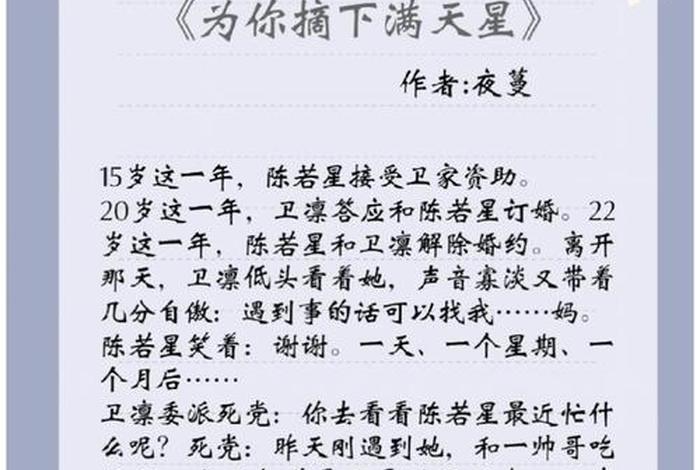 《为你摘下满天星》
作者:夜蔓
15岁这一年，陈若星接受卫家资助。
20岁这一年，卫凛答应和陈若星订婚。22
岁这一年，陈若星和卫凛解除婚约。离开
那天，卫凛低头看着她，声音寡淡又带着
几分自傲：遇到事的话可以找我……妈。
陈若星笑着：谢谢。一天、一个星期、一
个月后……
卫凛委派死党：你去看看陈若星最近忙什
么呢？死党：昨天刚遇到她，和一帅哥吃